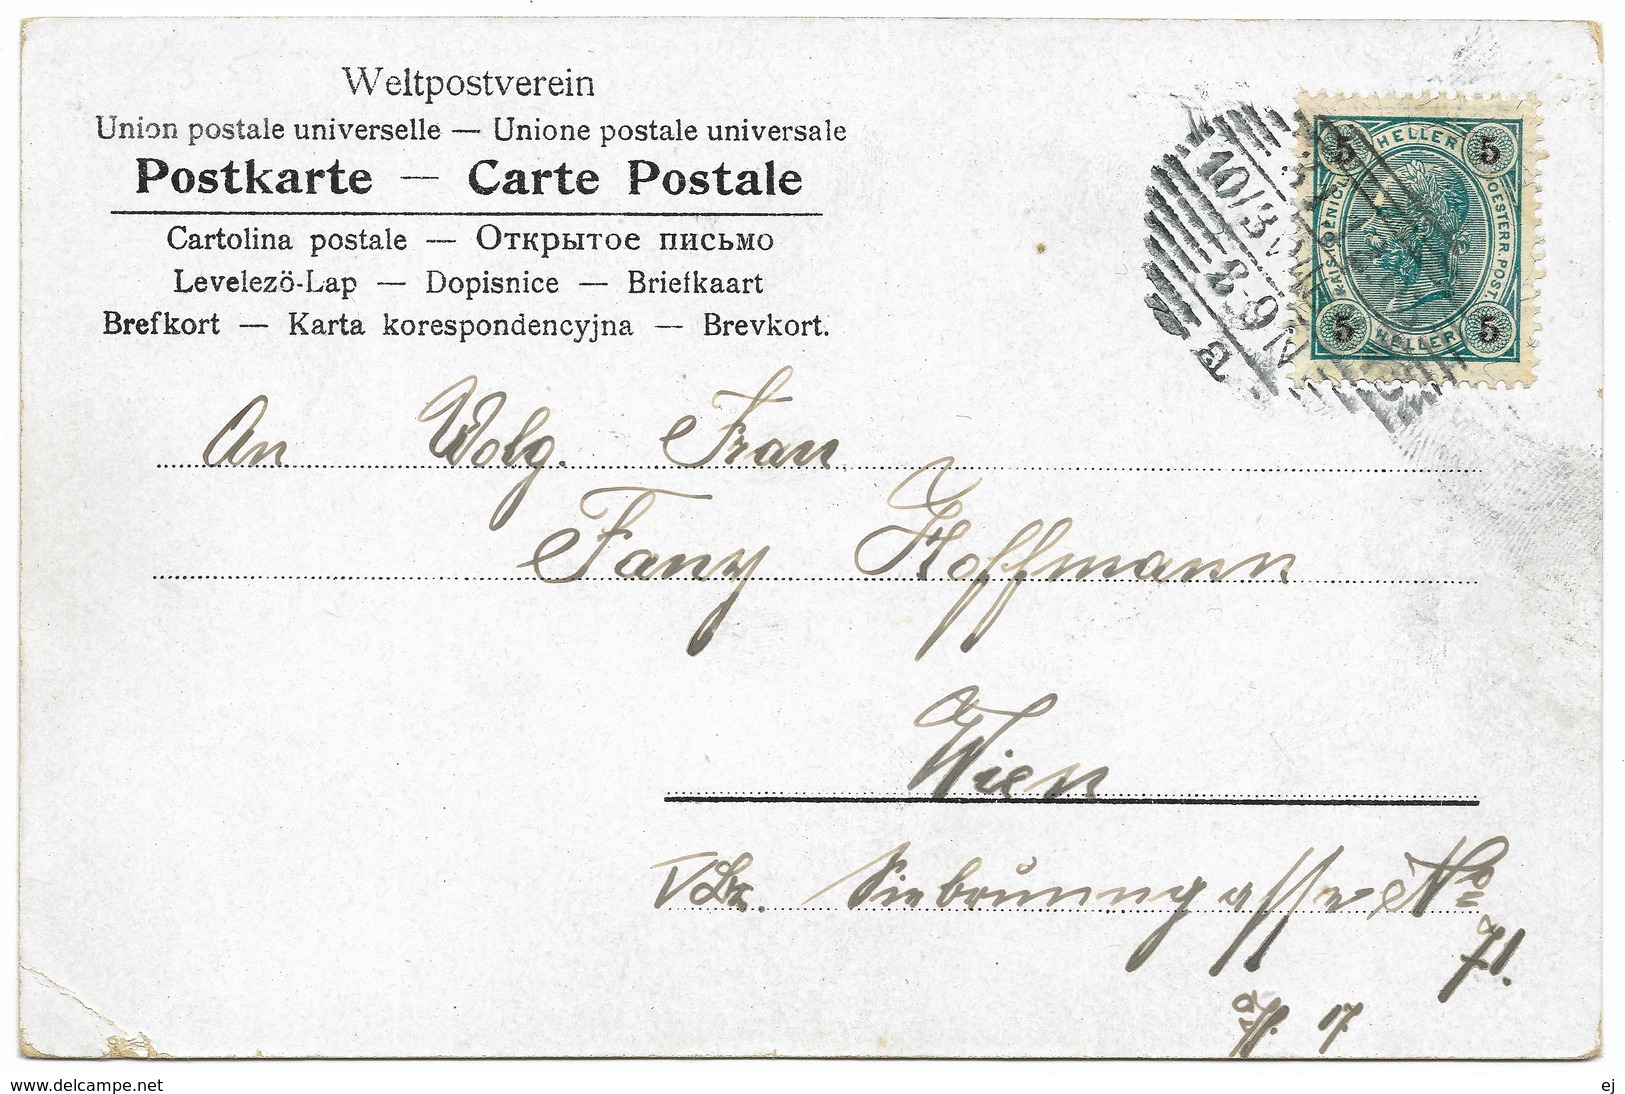 Weltpostverein
Union postale universelle — Unione postale universale
Postkarte — Carte Postale
Cartolina postale — Открытое письмо
Levelezö-Lap — Dopisnice — Briefkaart
Brefkort — Karta korespondencyjna — Brevkort.
HELLER
5 5
KAIS. KOENIGL. OESTERR. POST.
5 5
HELLER
10/3
8-9V
An Wolg. Frau
Fany Hoffmann
Wien
V Bz. Siebrunngasse No
71.
17
www.delcampe.net
ej